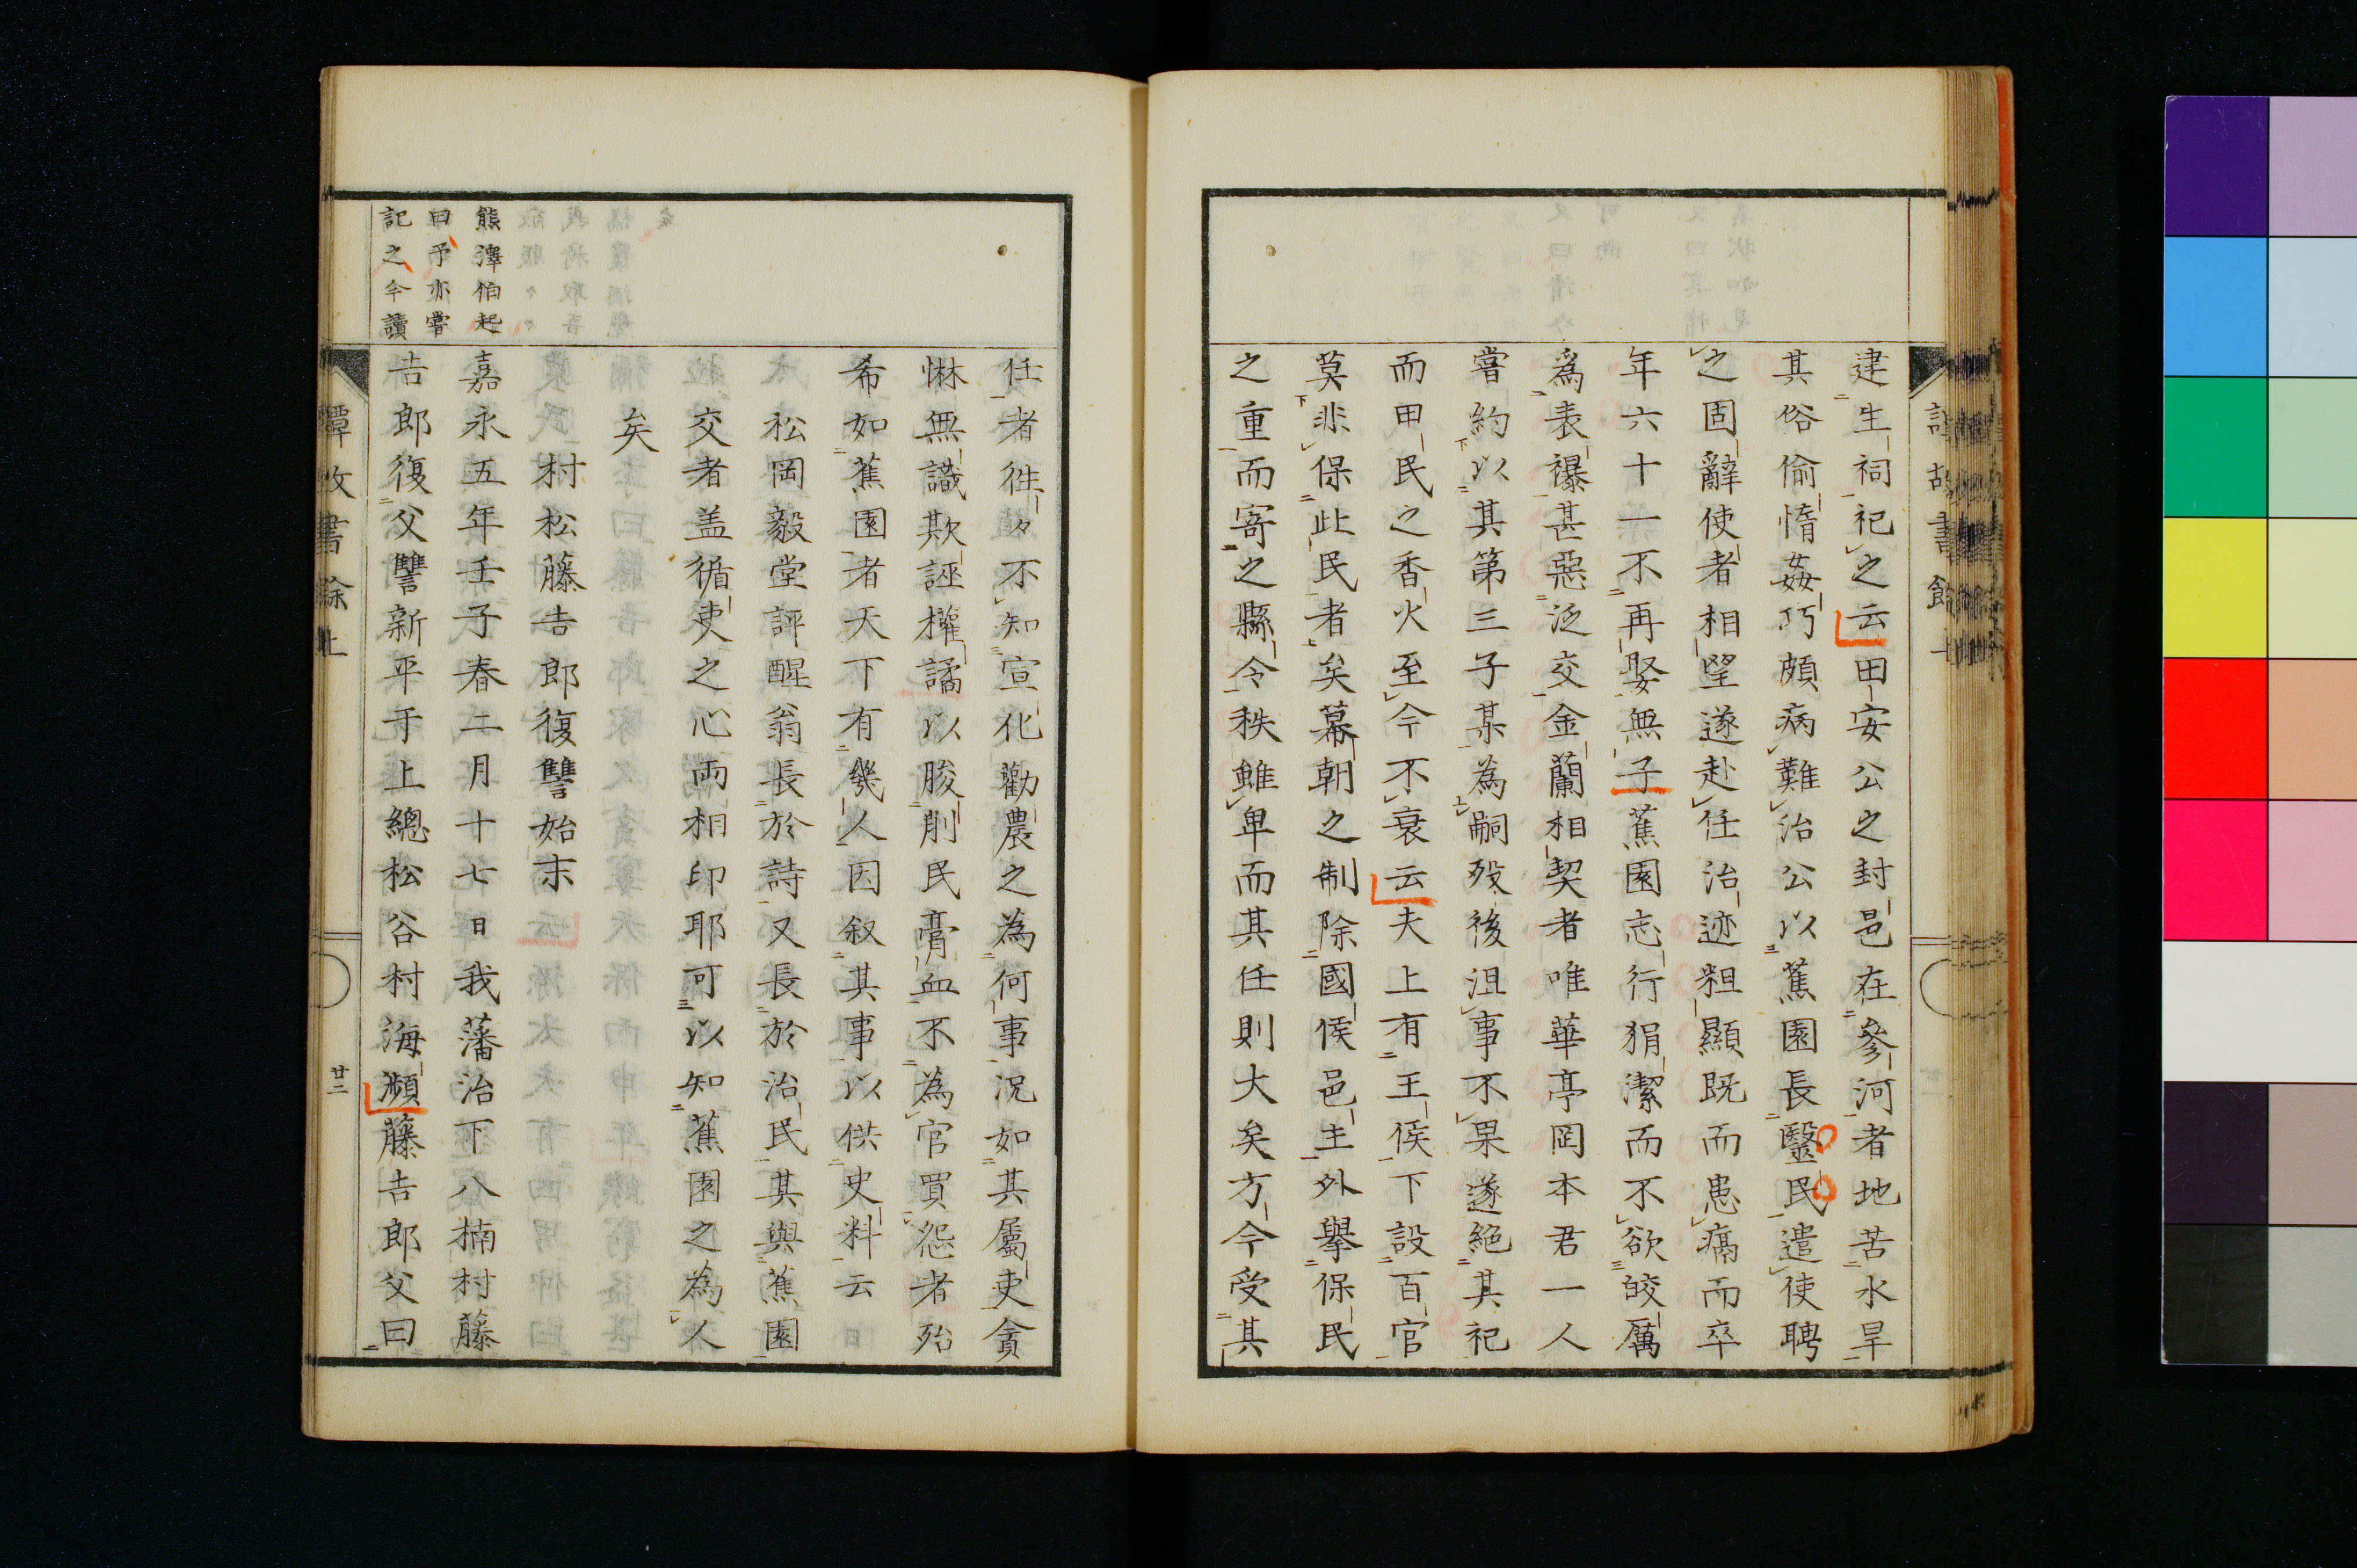 建生祠祀之云田安公之封邑在參河者地苦水旱
其俗偷惰姦巧頗病難治公以蕉園長毉民遣使聘
之固辭使者相望遂赴任治迹粗顯既而患癘而卒
年六十一不再娶無子蕉園志行狷潔而不欲皎厲
爲表襮甚惡泛交金蘭相契者唯華亭岡本君一人
嘗約以其第三子某為嗣歿後沮事不果遂絕其祀
而甲民之香火至今不衰云夫上有王侯下設百官
莫非保此民者矣幕朝之制除國侯邑主外擧保民
之重而寄之縣令秩雖卑而其任則大矣方今受其
任者徃々不知宣化勸農之為何事况如其屬吏貪
惏無識欺誣權譎以朘削民膏血不為官買怨者殆
希如蕉園者天下有幾人因叙其事以供史料云
松岡毅堂評醒翁長於詩又長於治民其與蕉園
交者盖循吏之心両相印耶可以知蕉園之為人
矣
村松藤吉郎復讐始末
嘉永五年壬子春二月十七日我藩治下八楠村藤
吉郎復父讐新平于上總松谷村海瀕藤吉郎父曰
熊澤伯起
曰予亦嘗
記之今讀
廿二